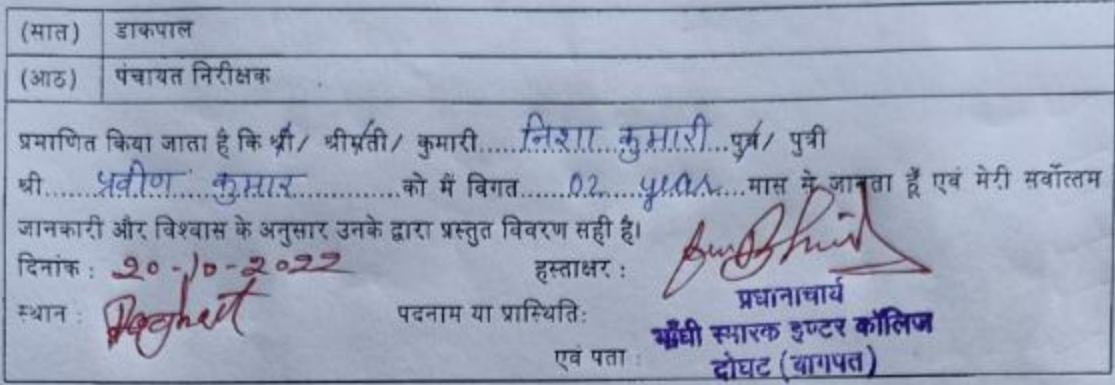 (सात) डाकपाल
(आठ) पंचायत निरीक्षक
प्रमाणित किया जाता है कि श्री/ श्रीमती/ कुमारी......निशा कुमारी...पुत्र/ पुत्री
श्री......प्रवीण कुमार............को मैं विगत......02 year...मास से जानता हूँ एवं मेरी सर्वोत्तम
जानकारी और विश्वास के अनुसार उनके द्वारा प्रस्तुत विवरण सही है।
दिनांक : 20-10-2022 हस्ताक्षर :
स्थान : Doghat पदनाम या प्रास्थिति:
प्रधानाचार्य
गाँधी स्मारक इण्टर कॉलिज
एवं पता : दोघट (बागपत)